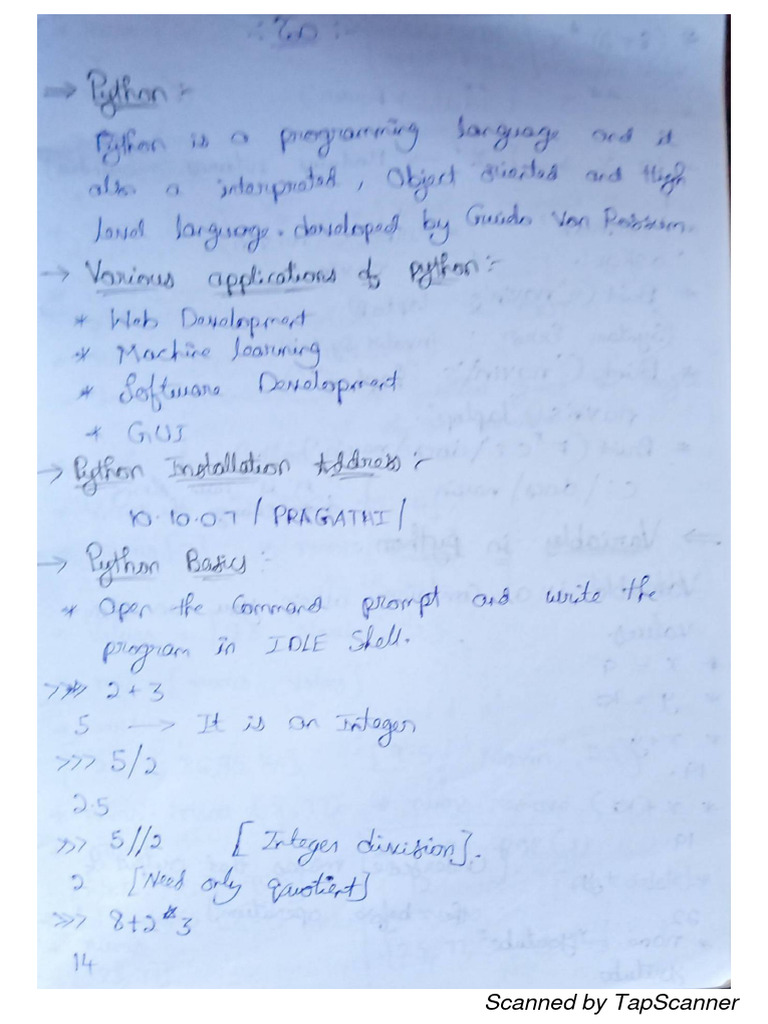 → Python :-
Python is a programming language and it
also a interpreted, Object oriented and High
level language. developed by Guido Van Rossum.
→ Various applications of python :-
* Web Development
* Machine learning
* Software Development
* GUI
→ Python Installation Address :-
10.10.0.7 / PRAGATHI /
→ Python Basics :-
* Open the Command prompt and write the
program in IDLE Shell.
>>> 2+3
5 → It is an Integer
>>> 5/2
2.5
>>> 5//2 [Integer division].
2 [Need only quotient]
>>> 8+2*3
14
Scanned by TapScanner